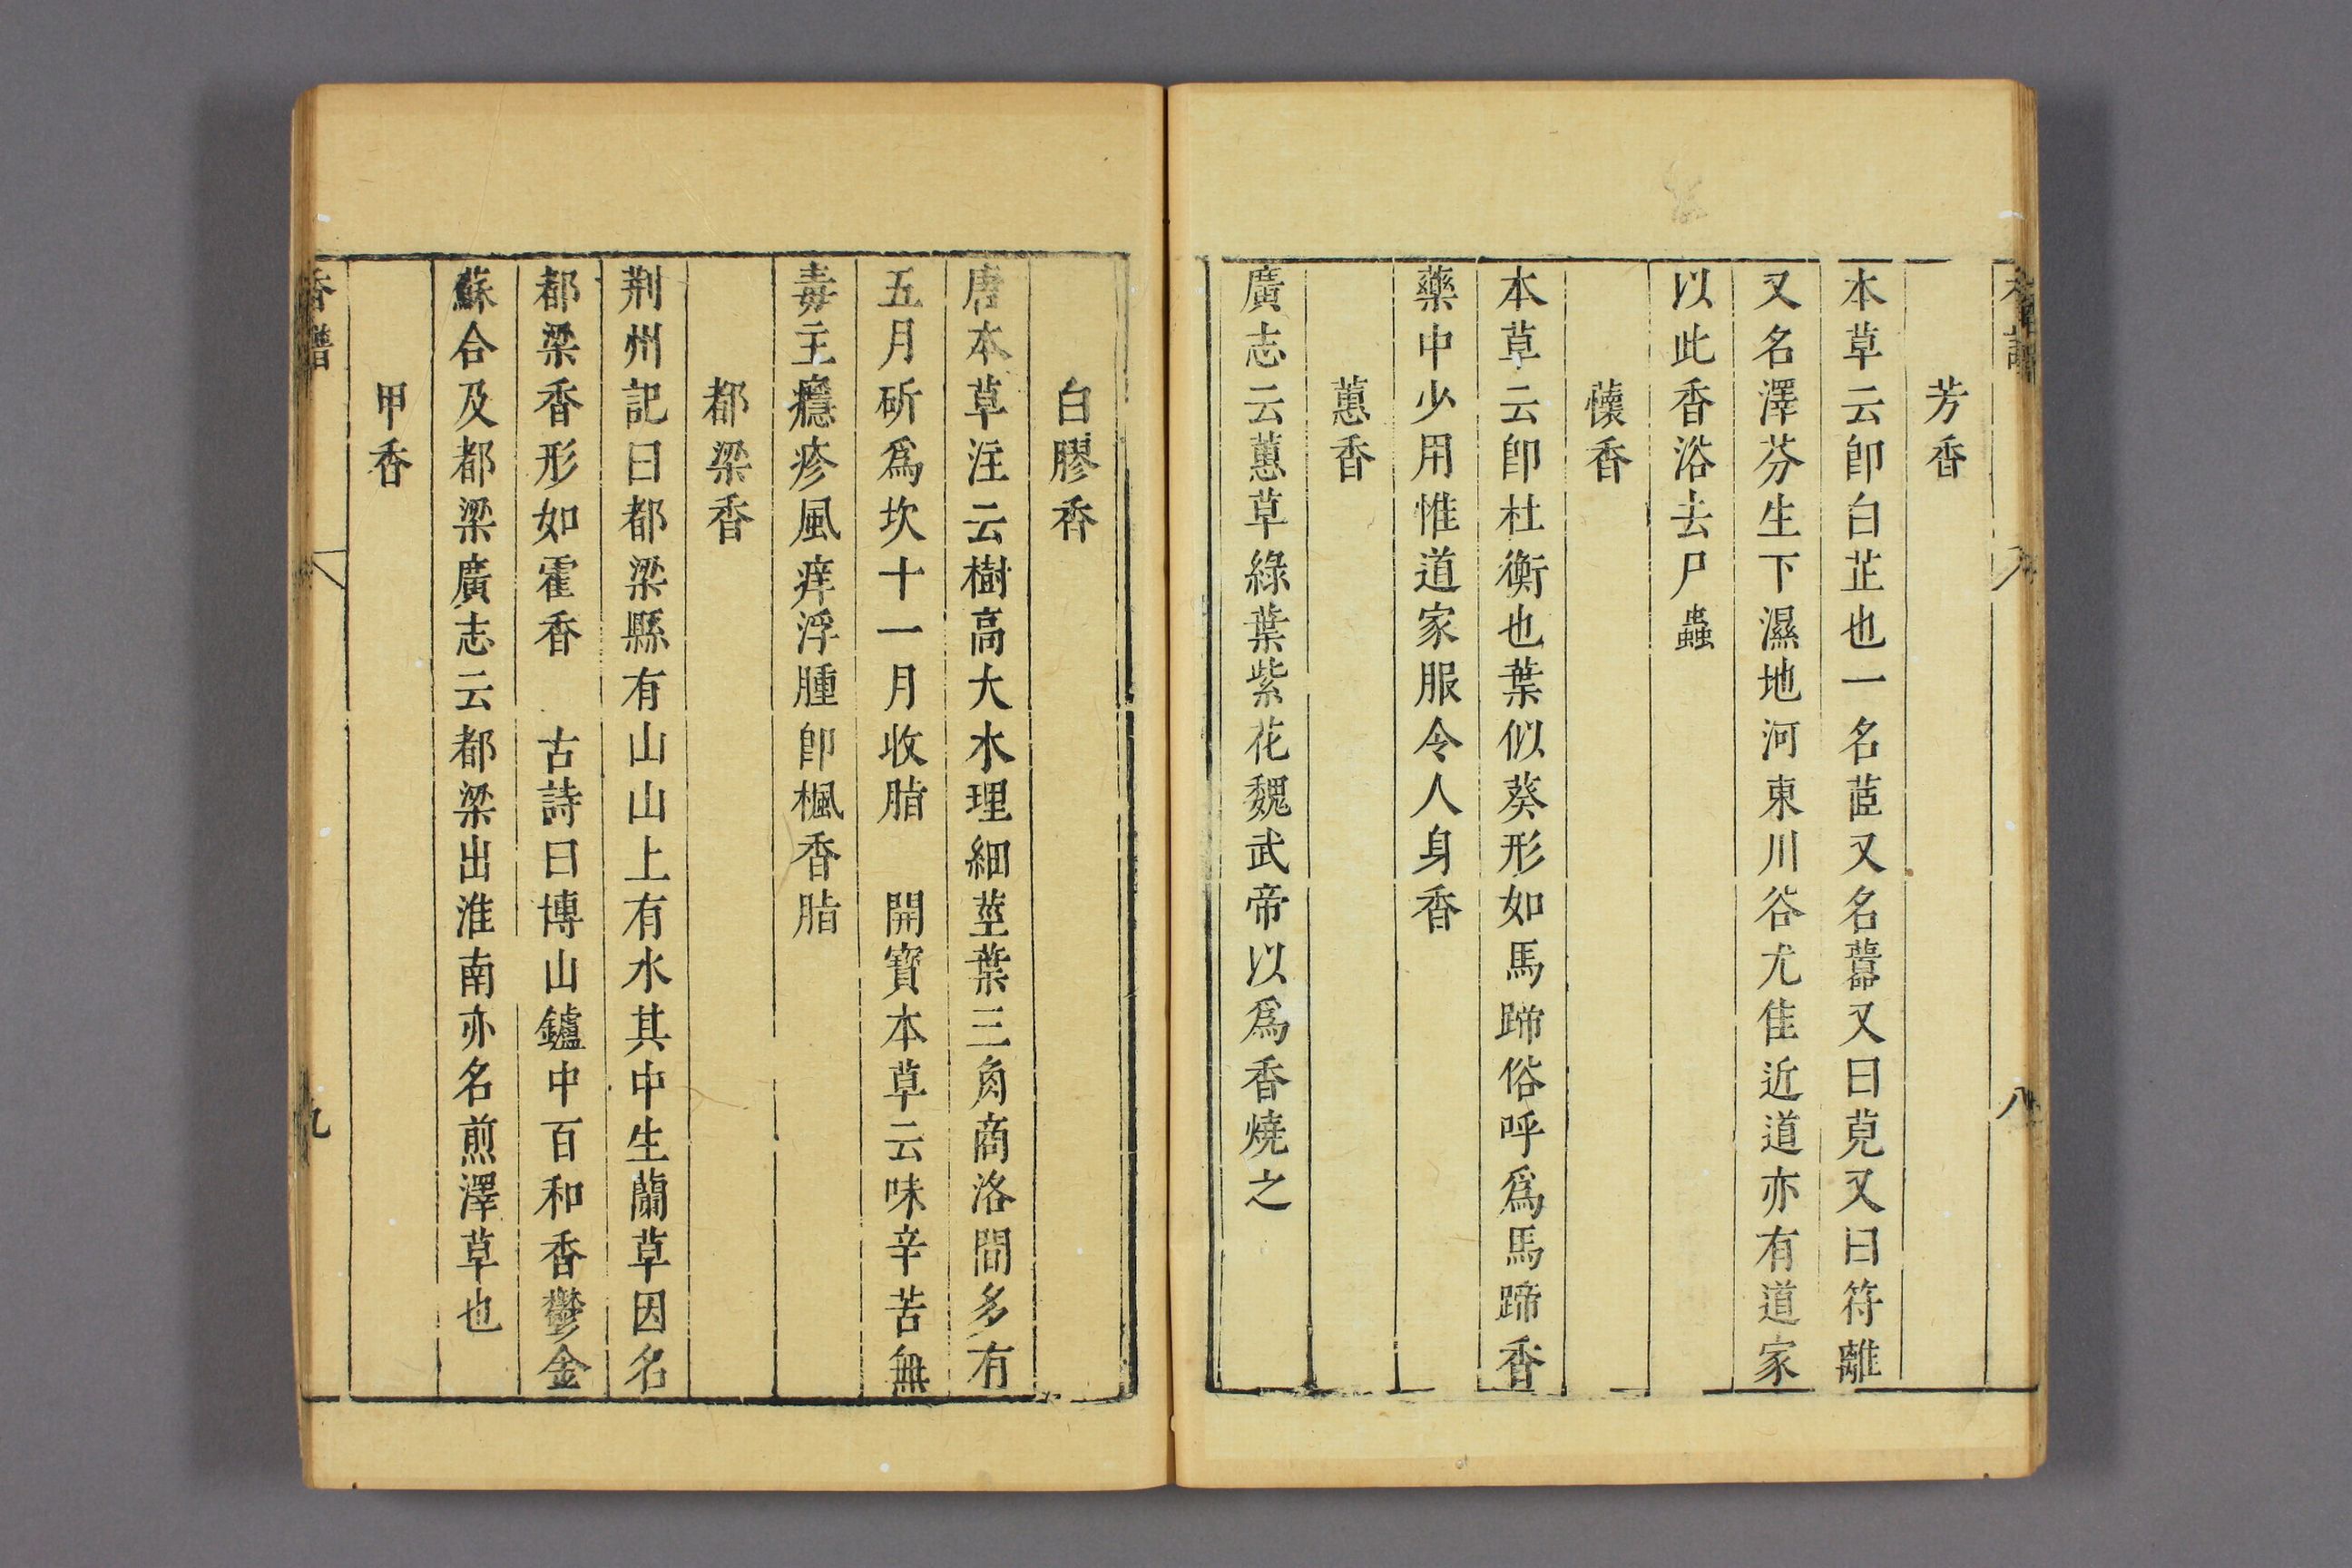 芳香
本草云卽白芷也一名茝又名蘬又曰莌又曰符離
又名澤芬生下濕地河東川谷尤佳近道亦有道家
以此香浴去尸蟲
蘹香
本草云卽杜衡也葉似葵形如馬蹄俗呼爲馬蹄香
藥中少用惟道家服令人身香
蕙香
廣志云蕙草綠葉紫花魏武帝以爲香燒之
白膠香
唐本草注云樹高大木理細莖葉三角商洛間多有
五月斫爲坎十一月收脂　開寶本草云味辛苦無
毒主癮疹風痒浮腫卽楓香脂
都梁香
荆州記曰都梁縣有山山上有水其中生蘭草因名
都梁香形如霍香　古詩曰博山鑪中百和香鬱金
蘇合及都梁廣志云都梁出淮南亦名煎澤草也
甲香
香譜
九